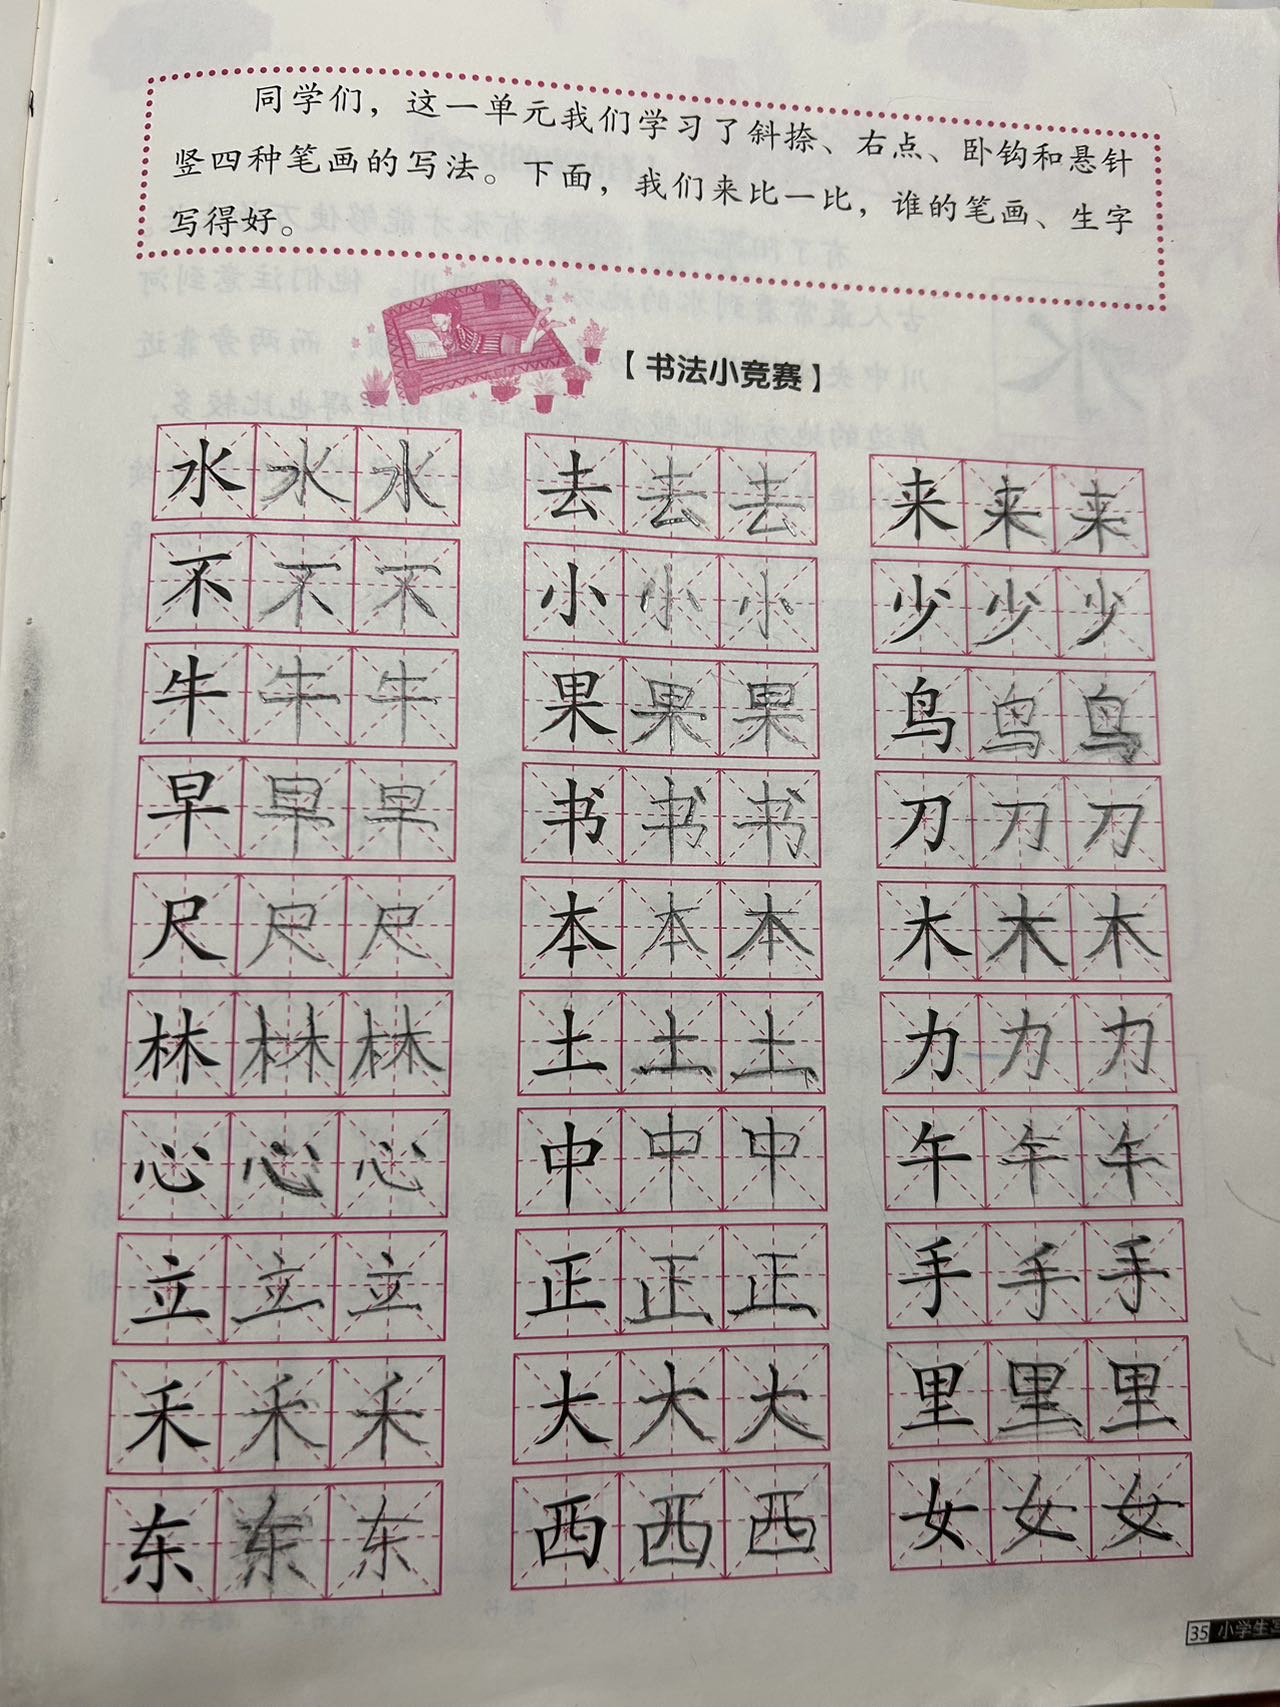 同学们，这一单元我们学习了斜捺、右点、卧钩和悬针
竖四种笔画的写法。下面，我们来比一比，谁的笔画、生字
写得好。
【书法小竞赛】
水水水 去去去 来来来
不不不 小小小 少少少
牛牛牛 果果果 鸟鸟鸟
早早早 书书书 刀刀刀
尺尺尺 本本本 木木木
林林林 土土土 力力力
心心心 中中中 午午午
立立立 正正正 手手手
禾禾禾 大大大 里里里
东东东 西西西 女女女
35 小学生写